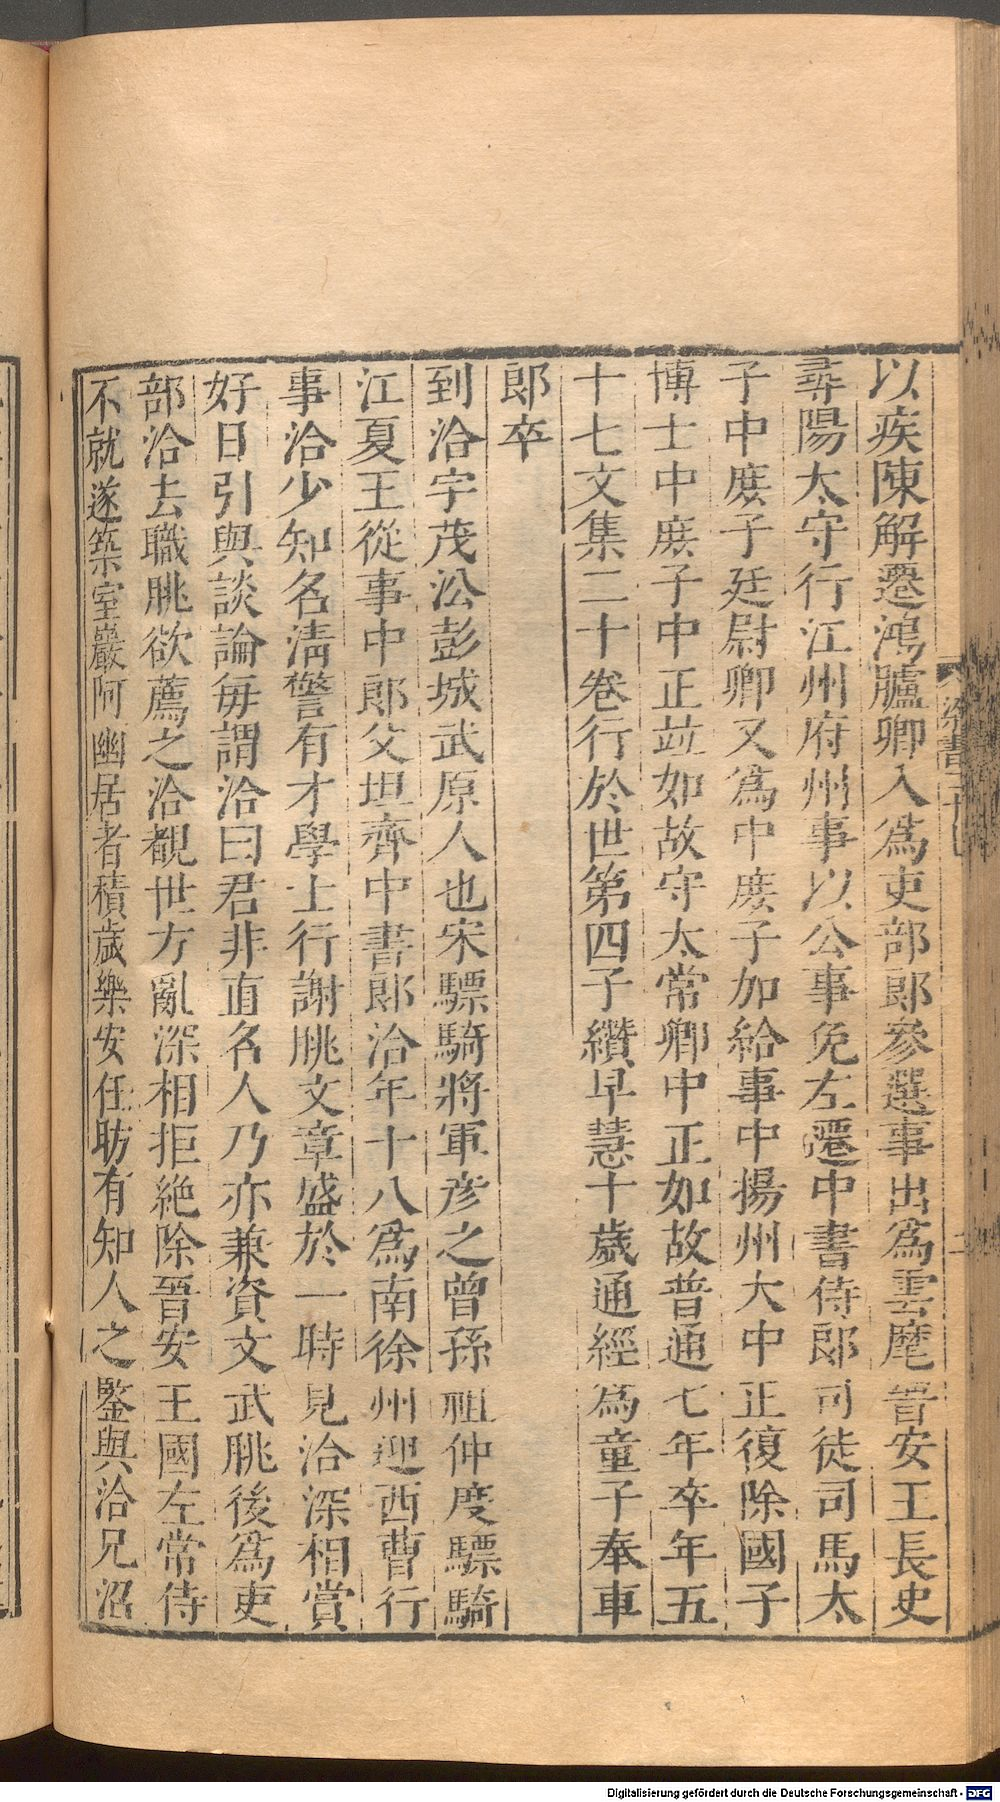 以疾陳解遷鴻臚卿入爲吏部郎參選事出爲雲麾晉安王長史
尋陽太守行江州府州事以公事免左遷中書侍郎司徒司馬太
子中庶子廷尉卿又爲中庶子加給事中揚州大中正復除國子
博士中庶子中正竝如故守太常卿中正如故普通七年卒年五
十七文集二十卷行於世第四子纘早慧十歲通經爲童子奉車
郎卒
到洽字茂㳂彭城武原人也宋驃騎將軍彦之曾孫祖仲度驃騎
江夏王從事中郎父坦齊中書郎洽年十八爲南徐州迎西曹行
事洽少知名淸警有才學士行謝朓文章盛於一時見洽深相賞
好日引與談論每謂洽曰君非直名人乃亦兼資文武朓後爲吏
部洽去職朓欲薦之洽覩世方亂深相拒絶除晉安王國左常侍
不就遂築室巖阿幽居者積歲樂安任昉有知人之鑒與洽兄沼
Digitalisierung gefördert durch die Deutsche Forschungsgemeinschaft - DFG